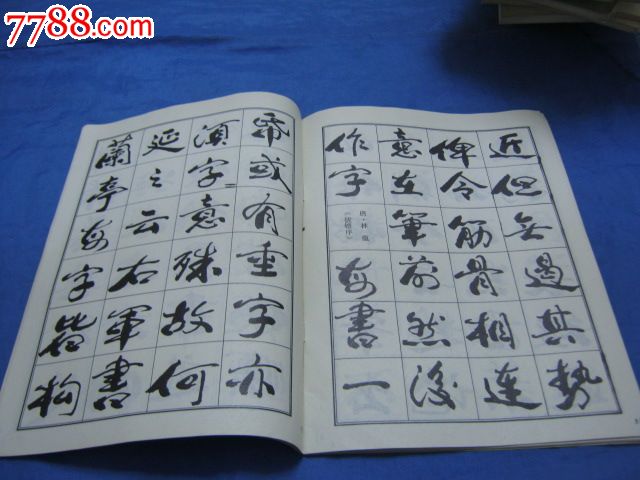 7788.com
近但無遏其勢
俾令筋骨相連
意在筆前然後
作字
唐·林蕴
《拨镫序》
每書一
帋或有重字亦
須字意殊故何
延之云右軍書
蘭亭每字皆構